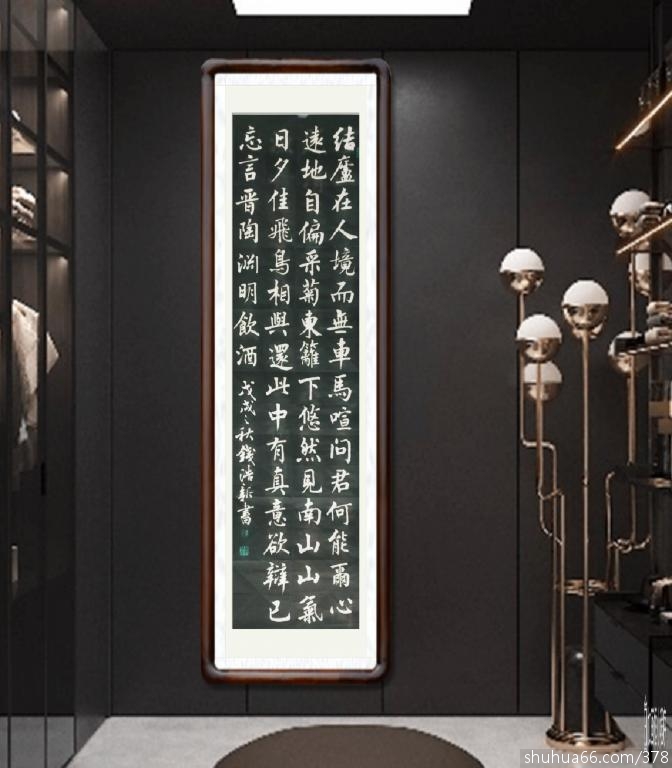 结廬在人境而無車馬喧问君何能爾心
遠地自偏采菊東籬下悠然見南山山氣
日夕佳飛鳥相與還此中有真意欲辯已
忘言晋陶渊明飲酒
戊戌之秋錢浩新書
shuhua66.com/378